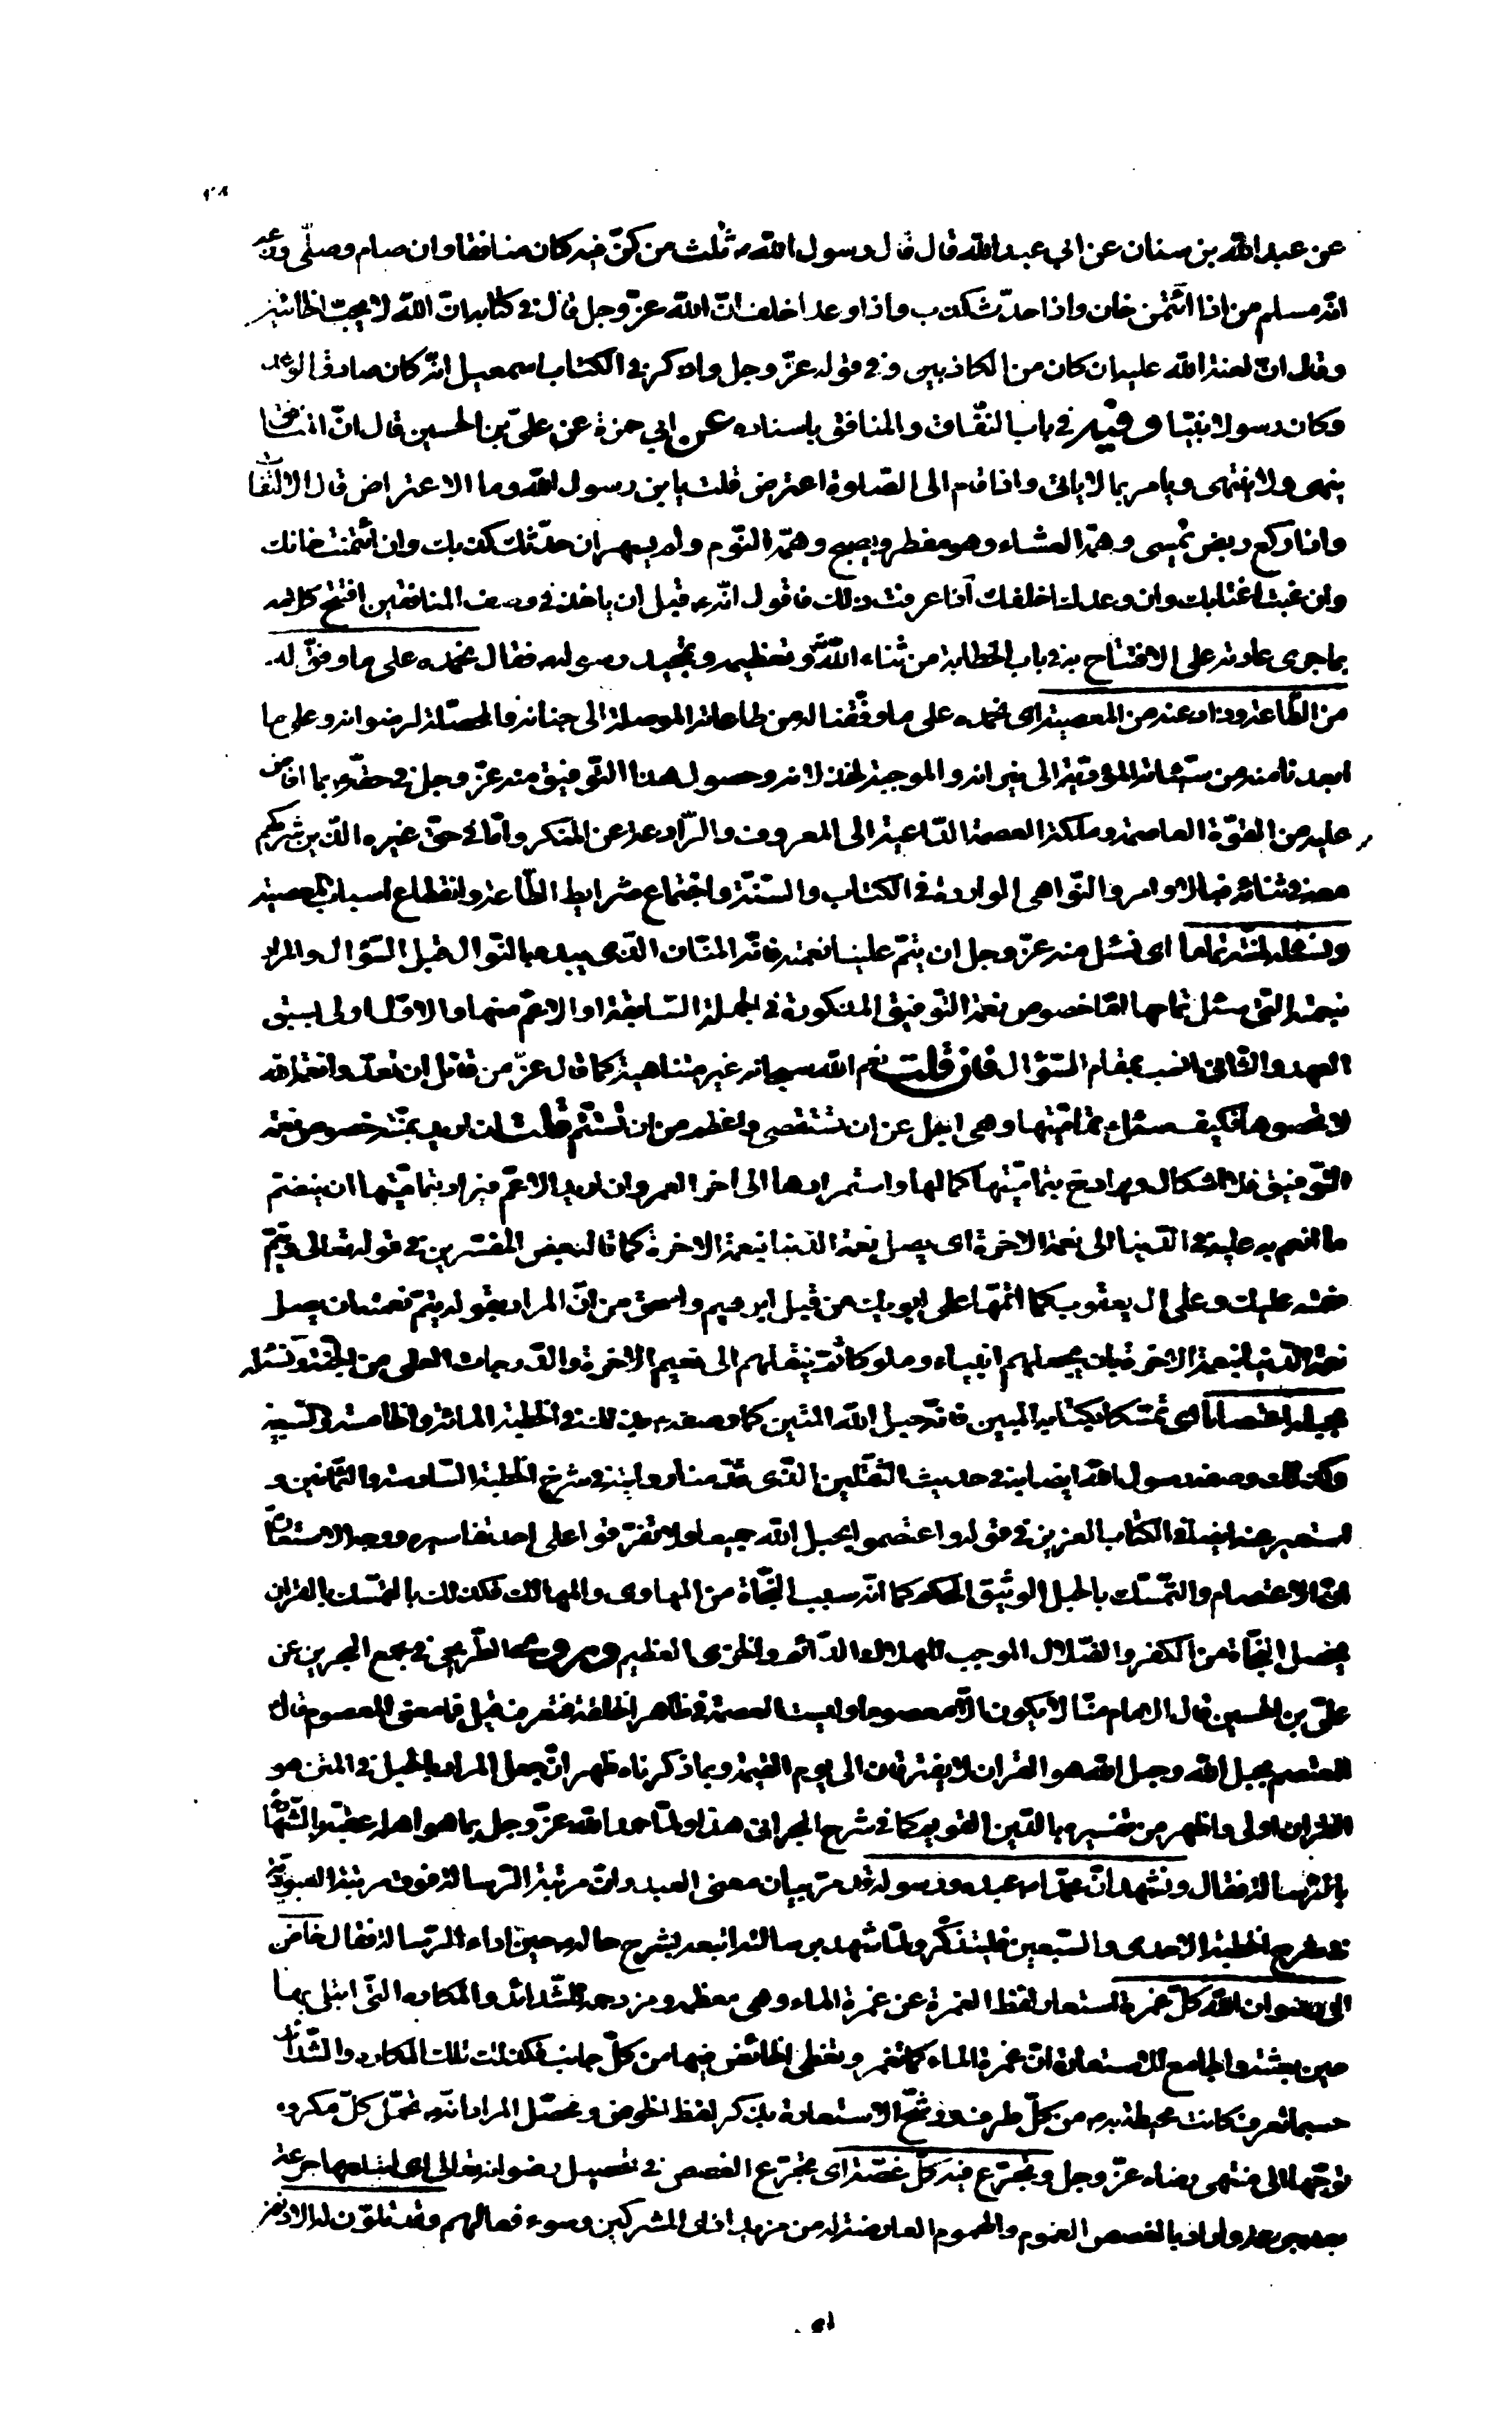 عن عبد الله بن سنان عن ابي عبد الله قال قال رسول الله ثلث من كنّ فيه كان منافقا وان صام وصلّى وزعم
انّه مسلم من اذا ائتمن خان واذا حدّث كذب واذا وعد اخلف انّ الله عزّ وجل قال في كتابه انّ الله لا يحبّ الخائنين
وقال انّ لعنة الله عليه ان كان من الكاذبين وفي قوله عزّ وجل واذكر في الكتاب اسمعيل انّه كان صادق الوعد
وكان رسولا نبيّا وفيه في باب النّفاق والمنافق باسناده عن ابي حمزة عن عليّ بن الحسين قال انّ المنافق
ينهى ولا ينتهى ويامر بما لا ياتي واذا قام الى الصّلوة اعترض قلت يابن رسول الله وما الاعتراض قال الالتفات
واذا ركع ربض يمسى وهمّه العشاء وهو مفطر ويصبح وهمّه النّوم ولم يسهر ان حدّثك كذبك وان ائتمنته خانك
وان غبت اغتابك وان وعدك اخلفك اذا عرفت ذلك فاقول انّه قبل ان ياخذ في وصف المنافقين افتتح كلامه
بما جرى عادته على الافتتاح به في باب الخطابة من ثناء الله وتعظيمه وتمجيد رسوله فقال نحمده على ما وفّق له
من الطّاعة وذاد عنه من المعصية اي نحمده على ما وفّقنا له من طاعاته الموصلة الى جنانه والمحصّلة لرضوانه وعلى ما
ابعدنا منه من سيّئاته المؤدّية الى نيرانه والموجبة لخذلانه وحصول هذا التّوفيق منه عزّ وجل في حقّه بما افاض
عليه من القوّة العاصمة وملكة العصمة الدّاعية الى المعروف والرّادعة عن المنكر وامّا في حقّ غيره الذين شركهم
معه في ثنائه فبالاوامر والنّواهي الواردة في الكتاب والسّنّة واجتماع شرايط الطّاعة وانقطاع اسباب المعصية
ونسئله لمنّته تماما اى نسئل منه عزّ وجل ان يتمّ علينا نعمته فانّه المنّان الذي يبدء بالنّوال قبل السّؤال والمراد
بنعمته التي سئل تمامها امّا خصوص نعمة التّوفيق المذكورة في الجملة السّابقة او الاعمّ منها والاوّل اولى بسبق
العهد والثّاني انسب بمقام السّؤال فان قلت نعم الله سبحانه غير متناهية كما قال عزّ من قائل ان تعدّوا نعمة الله
لا تحصوها فكيف سئل تماميّتها وهى اجلّ عن ان تستقصى واعظم من ان تستتمّ قلت ان اريد بمنّته خصوص نعمة
التّوفيق فلا اشكال ويراد ح بتماميّتها كمالها واستمرارها الى اخر العمر وان اريد الاعمّ فيراد بتماميّتها ان ينضمّ
ما انعم به عليه في الدّنيا الى نعمة الاخرة اى يصل نعمة الدّنيا بنعمة الاخرة كما قال بعض المفسّرين في قوله تعالى ويتمّ
نعمته عليك وعلى ال يعقوب كما اتمّها على ابويك من قبل ابرهيم واسحق من انّ المراد بقوله يتمّ نعمته ان يصل
نعمة الدّنيا بنعمة الاخرة بان يجعلهم انبياء وملوكا ثمّ ينقلهم الى نعيم الاخرة والدّرجات العلى من الجنّة ونسئله
بحبله اعتصاما اى تمسّكا بكتابه المبين فانّه حبل الله المتين كما وصفه بذلك في الخطبة المائة والخامسة والسّبعين
وكذلك وصفه رسول الله ايضا به في حديث الثّقلين الذي قدّمنا روايته في شرح الخطبة السّادسة والثّمانين و
استعير عنه ايضا في الكتاب العزيز في قوله واعتصموا بحبل الله جميعا ولا تفرّقوا على احد تفاسيره ووجه الاستعارة
انّ الاعتصام والتّمسّك بالحبل الوثيق المحكم كما انّه سبب النّجاة من المهاوى والمهالك فكذلك بالتمسّك بالقران
يحصل النّجاة من الكفر والضّلال الموجب للهلاك الدّائم والخزى العظيم وروى الطّريحى في مجمع البحرين عن
عليّ بن الحسين قال الامام منّا لا يكون الّا معصوما وليست العصمة في ظاهر الخلقة فتعرف قيل فما معنى المعصوم قال
المعتصم بحبل الله وحبل الله هو القران لا يفترقان الى يوم القيمة وبما ذكرناه ظهر انّ جعل المراد بالحبل في المتن هو
القران اولى واظهر من تفسيره بالدّين القويم كما في شرح البحراني هذا ولمّا حمد الله عزّ وجل بما هو اهله عقّبه بالشّهادة
بالرّسالة فقال ونشهد انّ محمّدا عبده ورسوله قد مرّ بيان معنى العبد وانّ مرتبة الرّسالة فوق مرتبة العبوديّة
في شرح الخطبة الاحدى والسّبعين فليتذكّر ولمّا شهد برسالته اتبعه بشرح حاله حين اداء الرّسالة فقال خاض
الى رضوان الله كلّ غمرة استعار لفظ الغمرة عن غمرة الماء وهى معظمه ومزدحمه للشّدائد والمكاره التى ابتلى بها
حين بعثته والجامع للاستعارة انّ غمرة الماء كما تغمر وتغطّى الخائض فيها من كلّ جانب فكذلك تلك المكاره والشّدائد
حسبما تعرف كانت محيطة به من كلّ طرف ورشّح الاستعارة بذكر لفظ الخوض ومحصّل المراد انّه تحمّل كلّ مكروه
توجّها الى منتهى رضاه عزّ وجل وتجرّع فيه كلّ غصّة اى تجرّع الغصص في تحصيل رضوانه تعالى اى ابتلعها جرعة
بعد جرعة واراد بالغصص الغموم والهموم العارضة له من مزيد اذى المشركين وسوء فعالهم وقد تلوّن له الادنون